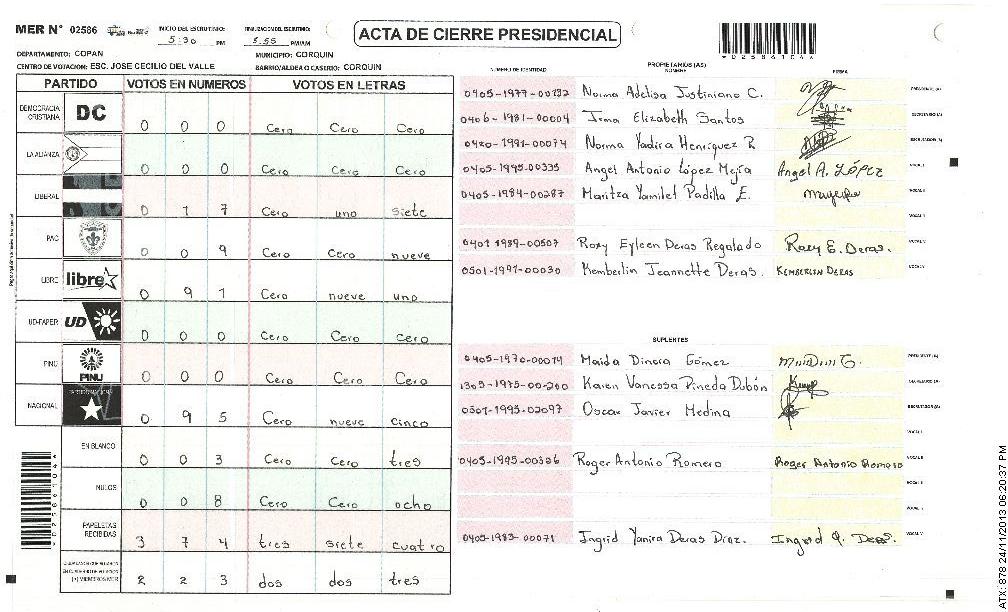 MER N° 02586 INICIO DEL ESCRUTINIO: 5:30 PM FINALIZACION DEL ESCRUTINIO: 5:55 PM/AM
ACTA DE CIERRE PRESIDENCIAL
*02586104*
DEPARTAMENTO: COPAN MUNICIPIO: CORQUIN
CENTRO DE VOTACION: ESC. JOSE CECILIO DEL VALLE BARRIO/ALDEA O CASERIO: CORQUIN
PARTIDO VOTOS EN NUMEROS VOTOS EN LETRAS
DEMOCRACIA CRISTIANA DC 0 0 0 Cero Cero Cero
LA ALIANZA 0 0 0 Cero Cero Cero
LIBERAL 0 1 7 Cero uno siete
PAC 0 0 9 Cero Cero nueve
LIBRE libre 0 9 1 Cero nueve uno
UD-FAPER UD 0 0 0 Cero Cero Cero
PINU PINU 0 0 0 Cero Cero Cero
NACIONAL 0 9 5 Cero nueve cinco
EN BLANCO 0 0 3 Cero Cero tres
NULOS 0 0 8 Cero Cero ocho
PAPELETAS RECIBIDAS 3 7 4 tres siete cuatro
(+) MIEMBROS MER 2 2 3 dos dos tres
*02586104*
NUMERO DE IDENTIDAD PROPIETARIOS (AS) NOMBRE FIRMA
Norma Adelisa Justiniano C. PRESIDENTE (A)
0406-1981-00004 Irma Elizabeth Santos SECRETARIO (A)
0420-1991-00074 Norma Yadira Henriquez R. ESCRUTADOR (A)
0405-1995-00335 Angel Antonio López Mejía Angel A. LÓPEZ VOCAL I
0405-1984-00287 Maritza Yamilet Padilla E. VOCAL II
VOCAL III
0401-1989-00507 Roxy Eyleen Deras Regalado Roxy E. Deras. VOCAL IV
0501-1991-00030 Kemberlin Jeannette Deras. KEMBERLIN DERAS VOCAL V
SUPLENTES
0405-1970-00074 Maida Dinora Gómez PRESIDENTE (A)
1305-1975-00200 Karen Vanessa Pineda Dubón SECRETARIO (A)
0501-1995-02097 Oscar Javier Medina ESCRUTADOR (A)
VOCAL I
0405-1995-00336 Roger Antonio Romero Roger Antonio Romero VOCAL II
0405-1983-00071 Ingrid Yanira Deras Diaz. Ingrid Y. Deras. VOCAL V
ATX: 878 24/11/2013 06:20:37 PM